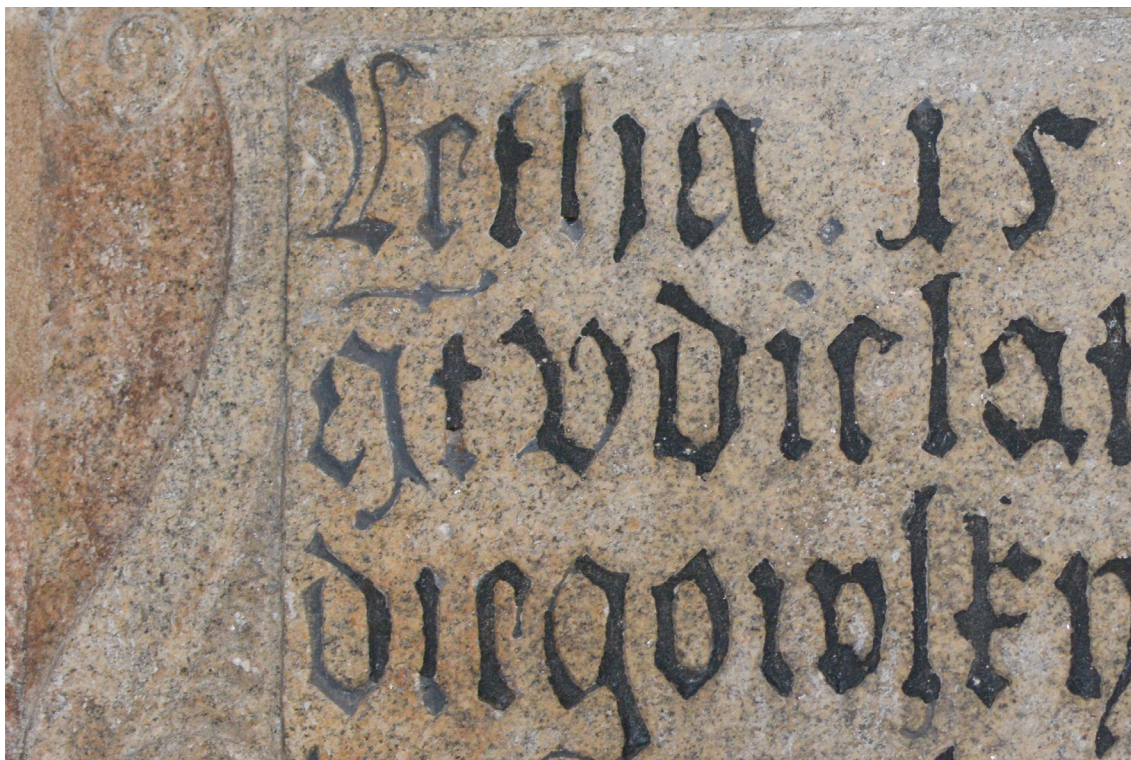 Letha . 15
g̅t vdielat
diegowſky